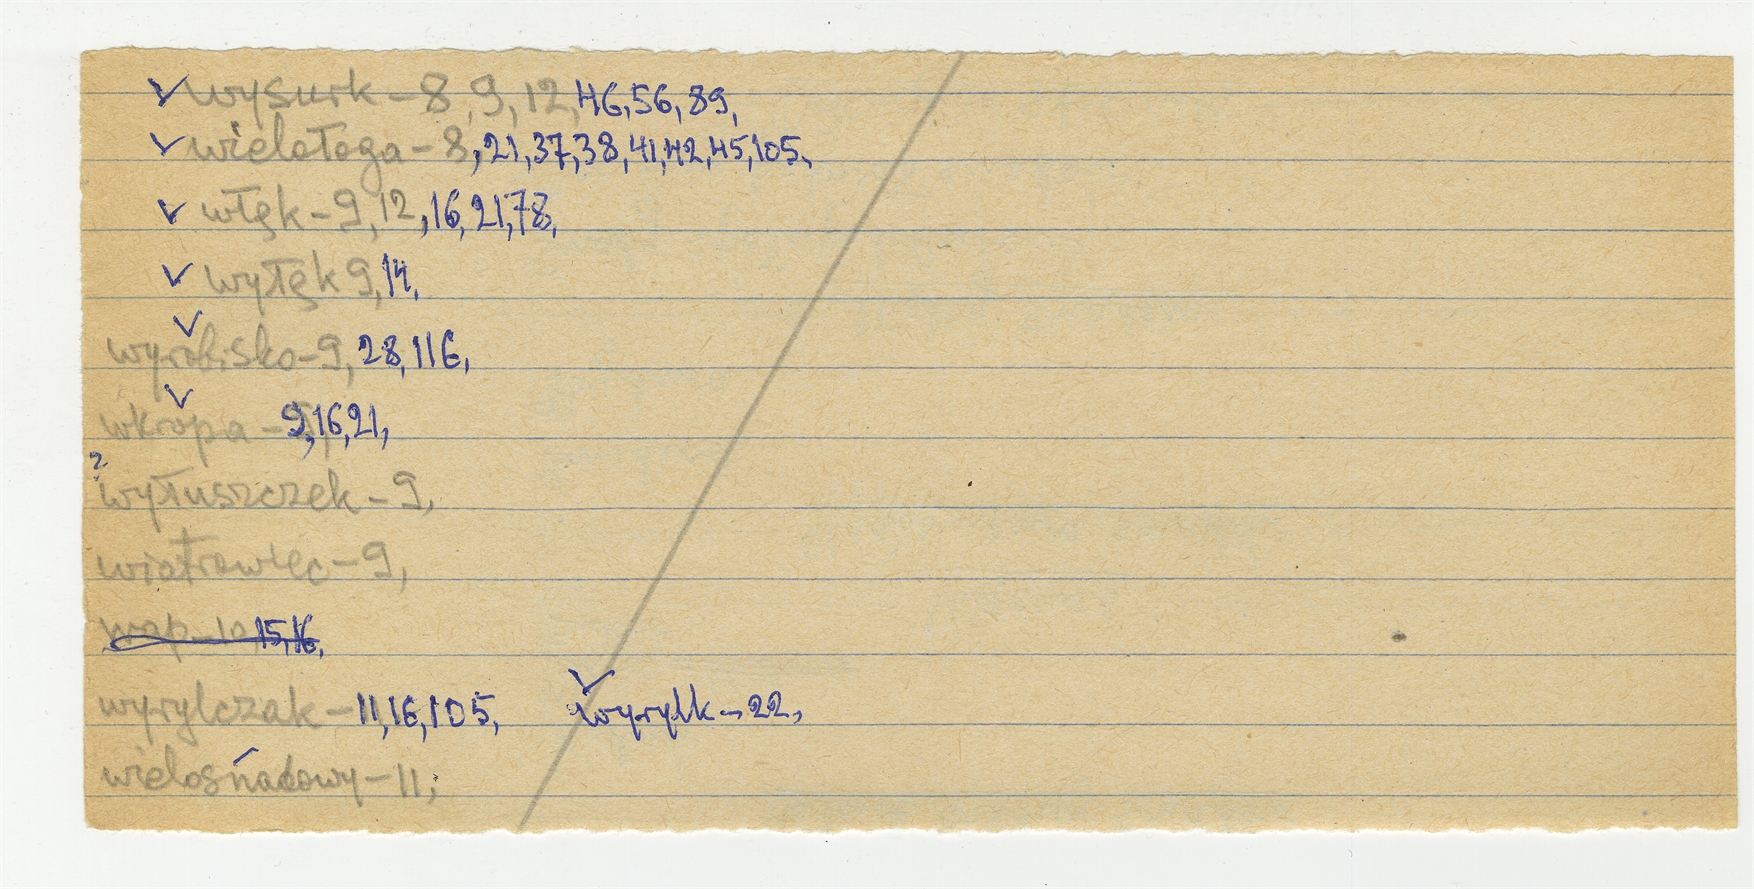 ✓ wysurk – 8, 9, 12, 46, 56, 89,
✓ wielołoga – 8, 21, 37, 38, 41, 42, 45, 105,
✓ włęk – 9, 12, 16, 21, 78,
✓ wyłęk 9, 14,
✓ wyrobisko – 9, 28, 116,
✓ wkropa – 9, 16, 21,
? wyłuszczek – 9,
wiatrowiec – 9,
wap – 10, 15, 16,
wyrylczak – 11, 16, 105, ✓ wyrylk – 22,
wielosńadowy – 11,